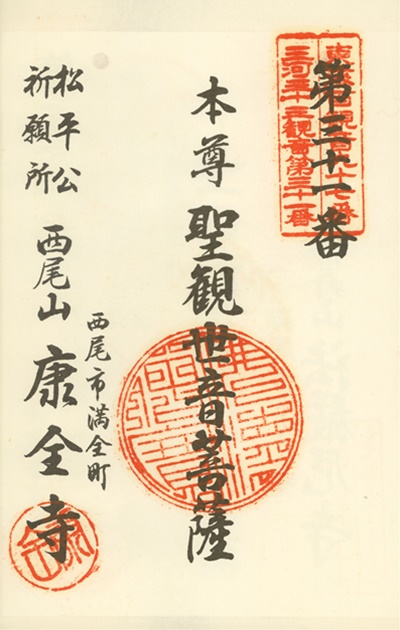 第三十一番
三河三十三観音第三十一番
本尊聖観世音菩薩
西尾市満全町
松平公
祈願所
西尾山康全寺